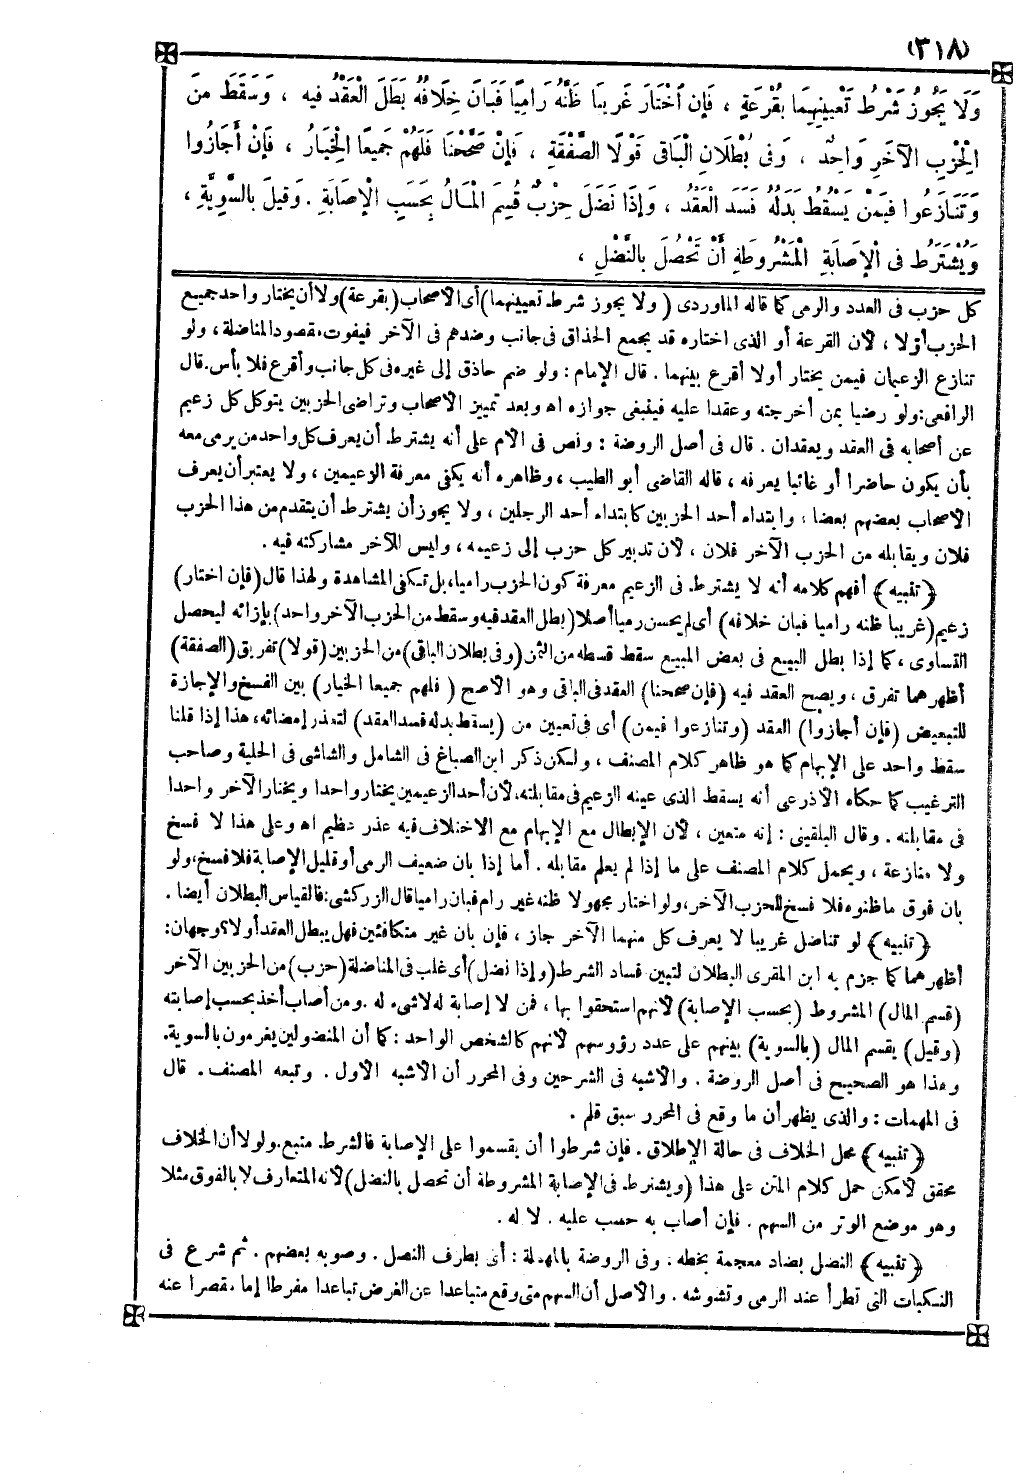 (٣١٨)
وَلَا يَجُوزُ شَرْطُ تَعْيِينِهِمَا بِقُرْعَةٍ ، فَإِن اخْتَارَ غَرِيبًا ظَنَّهُ رَامِيًا فَبَانَ خِلَافُهُ بَطَلَ الْعَقْدُ فِيهِ ، وَسَقَطَ مِنَ
الْحِزْبِ الآخَرِ وَاحِدٌ ، وَفِى بُطْلَانِ الْبَاقِى قَوْلَا الصَّفْقَةِ ، فَإِنْ صَحَّحْنَا فَلَهُمْ جَمِيعًا الْخِيَارُ ، فَإِنْ أَجَازُوا
وَتَنَازَعُوا فِيمَنْ يَسْقُطُ بَدَلُهُ فَسَدَ الْعَقْدُ ، وَإِذَا نَضَلَ حِزْبٌ قُسِمَ الْمَالُ بِحَسَبِ الْإِصَابَةِ . وَقِيلَ بِالسَّوِيَّةِ ،
وَيُشْتَرَطُ فِى الْإِصَابَةِ الْمَشْرُوطَةِ أَنْ تَحْصُلَ بِالنَّصْلِ ،
كل حزب فى العدد والرمى كما قاله الماوردى ( ولا يجوز شرط تعيينهما) أى الأصحاب (بقرعة) ولا أن يختار واحد جميع
الحزب أولا ، لأن القرعة أو الذى اختاره قد يجمع الحذاق فى جانب وضدهم فى الآخر فيفوت مقصود المناضلة ، ولو
تنازع الزعيمان فيمن يختار أولا أقرع بينهما . قال الإمام : ولو ضم حاذق إلى غيره فى كل جانب وأقرع فلا بأس . قال
الرافعى: ولو رضيا بمن أخرجته وعقدا عليه فينبغى جوازه اه وبعد تمييز الأصحاب وتراضى الحزبين يتوكل كل زعيم
عن أصحابه فى العقد ويعقدان . قال فى أصل الروضة : ونص فى الأم على أنه يشترط أن يعرف كل واحد من يرمى معه
بأن يكون حاضرا أو غائبا يعرفه ، قاله القاضى أبو الطيب ، وظاهره أنه يكفى معرفة الزعيمين ، ولا يعتبر أن يعرف
الأصحاب بعضهم بعضا ، وابتداء أحد الحزبين كابتداء أحد الرجلين ، ولا يجوز أن يشترط أن يتقدم من هذا الحزب
فلان ويقابله من الحزب الآخر فلان ، لأن تدبير كل حزب إلى زعيمه ، وليس للآخر مشاركته فيه .
﴿ تنبيه ﴾ أفهم كلامه أنه لا يشترط فى الزعيم معرفة كون الحزب راميا، بل تكفى المشاهدة ولهذا قال (فإن اختار)
زعيم (غريبا ظنه راميا فبان خلافه) أى لم يحسن رميا أصلا (بطل العقد فيه وسقط من الحزب الآخر واحد) بإزائه ليحصل
التساوى ، كما إذا بطل البيع فى بعض المبيع سقط قسطه من الثمن (وفى بطلان الباقى) من الحزبين (قولا) تفريق (الصفقة)
أظهرهما تفرق ، ويصح العقد فيه (فإن صححنا) العقد فى الباقى وهو الأصح ( فلهم جميعا الخيار) بين الفسخ والإجازة
للتبعيض (فإن أجازوا) العقد (وتنازعوا فيمن) أى فى تعيين من (يسقط بدله فسد العقد) لتعذر إمضائه، هذا إذا قلنا
سقط واحد على الإبهام كما هو ظاهر كلام المصنف ، ولكن ذكر ابن الصباغ فى الشامل والشاشى فى الحلية وصاحب
الترغيب كما حكاه الأذرعى أنه يسقط الذى عينه الزعيم فى مقابلته، لأن أحد الزعيمين يختار واحدا ويختار الآخر واحدا
فى مقابلته . وقال البلقينى : إنه متعين ، لأن الإبطال مع الإبهام مع الاختلاف فيه عذر عظيم اه وعلى هذا لا فسخ
ولا منازعة ، ويحمل كلام المصنف على ما إذا لم يعلم مقابله . أما إذا بان ضعيف الرمى أو قليل الإصابة فلا فسخ، ولو
بان فوق ما ظنوه فلا فسخ للحزب الآخر، ولو اختار مجهولا ظنه غير رام فبان راميا قال الزركشى: فالقياس البطلان أيضا .
﴿ تنبيه ﴾ لو تناضل غريبا لا يعرف كل منهما الآخر جاز ، فإن بان غير متكافئين فهل يبطل العقد أولا؟ وجهان:
أظهرهما كما جزم به ابن المقرى البطلان لتبين فساد الشرط (وإذا نضل) أى غلب فى المناضلة (حزب) من الحزبين الآخر
(قسم المال) المشروط (بحسب الإصابة) لأنهم استحقوا بها ، فمن لا إصابة له لا شىء له . ومن أصاب أخذ بحسب إصابته
(وقيل) يقسم المال (بالسوية) بينهم على عدد رؤوسهم لأنهم كالشخص الواحد : كما أن المنضولين يغرمون بالسوية.
وهذا هو الصحيح فى أصل الروضة . والأشبه فى الشرحين وفى المحرر أن الأشبه الأول . وتبعه المصنف . قال
فى المهمات : والذى يظهر أن ما وقع فى المحرر سبق قلم .
﴿ تنبيه ﴾ محل الخلاف فى حالة الإطلاق . فإن شرطوا أن يقسموا على الإصابة فالشرط متبع. ولولا أن الخلاف
محقق لأمكن حمل كلام المتن على هذا (ويشترط فى الإصابة المشروطة أن تحصل بالنصل) لأنه المتعارف لا بالفوق مثلا
وهو موضع الوتر من السهم . فإن أصاب به حسب عليه . لا له .
﴿ تنبيه ﴾ النضل بضاد معجمة بخطه . وفى الروضة بالمهملة : أى بطرف النصل . وصوبه بعضهم . ثم شرع فى
النكبات التى تطرأ عند الرمى وتشوشه . والأصل أن السهم متى وقع متباعدا عن الغرض تباعدا مفرطا إما مقصرا عنه